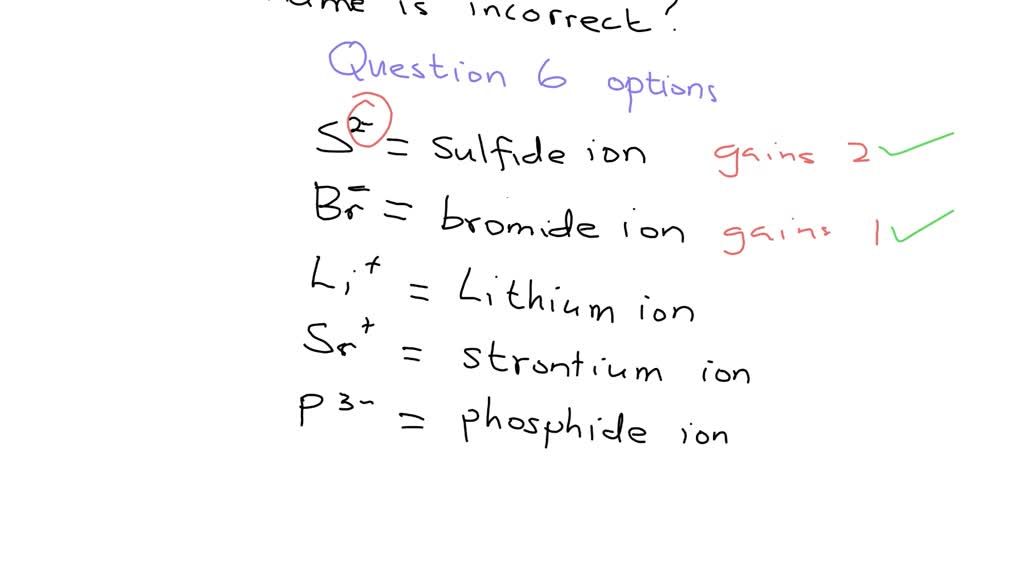 is incorrect?
Question 6 options
S²⁻ = sulfide ion gains 2 ✓
Br⁻ = bromide ion gains 1 ✓
Li⁺ = Lithium ion
Sr⁺ = strontium ion
P³⁻ = phosphide ion